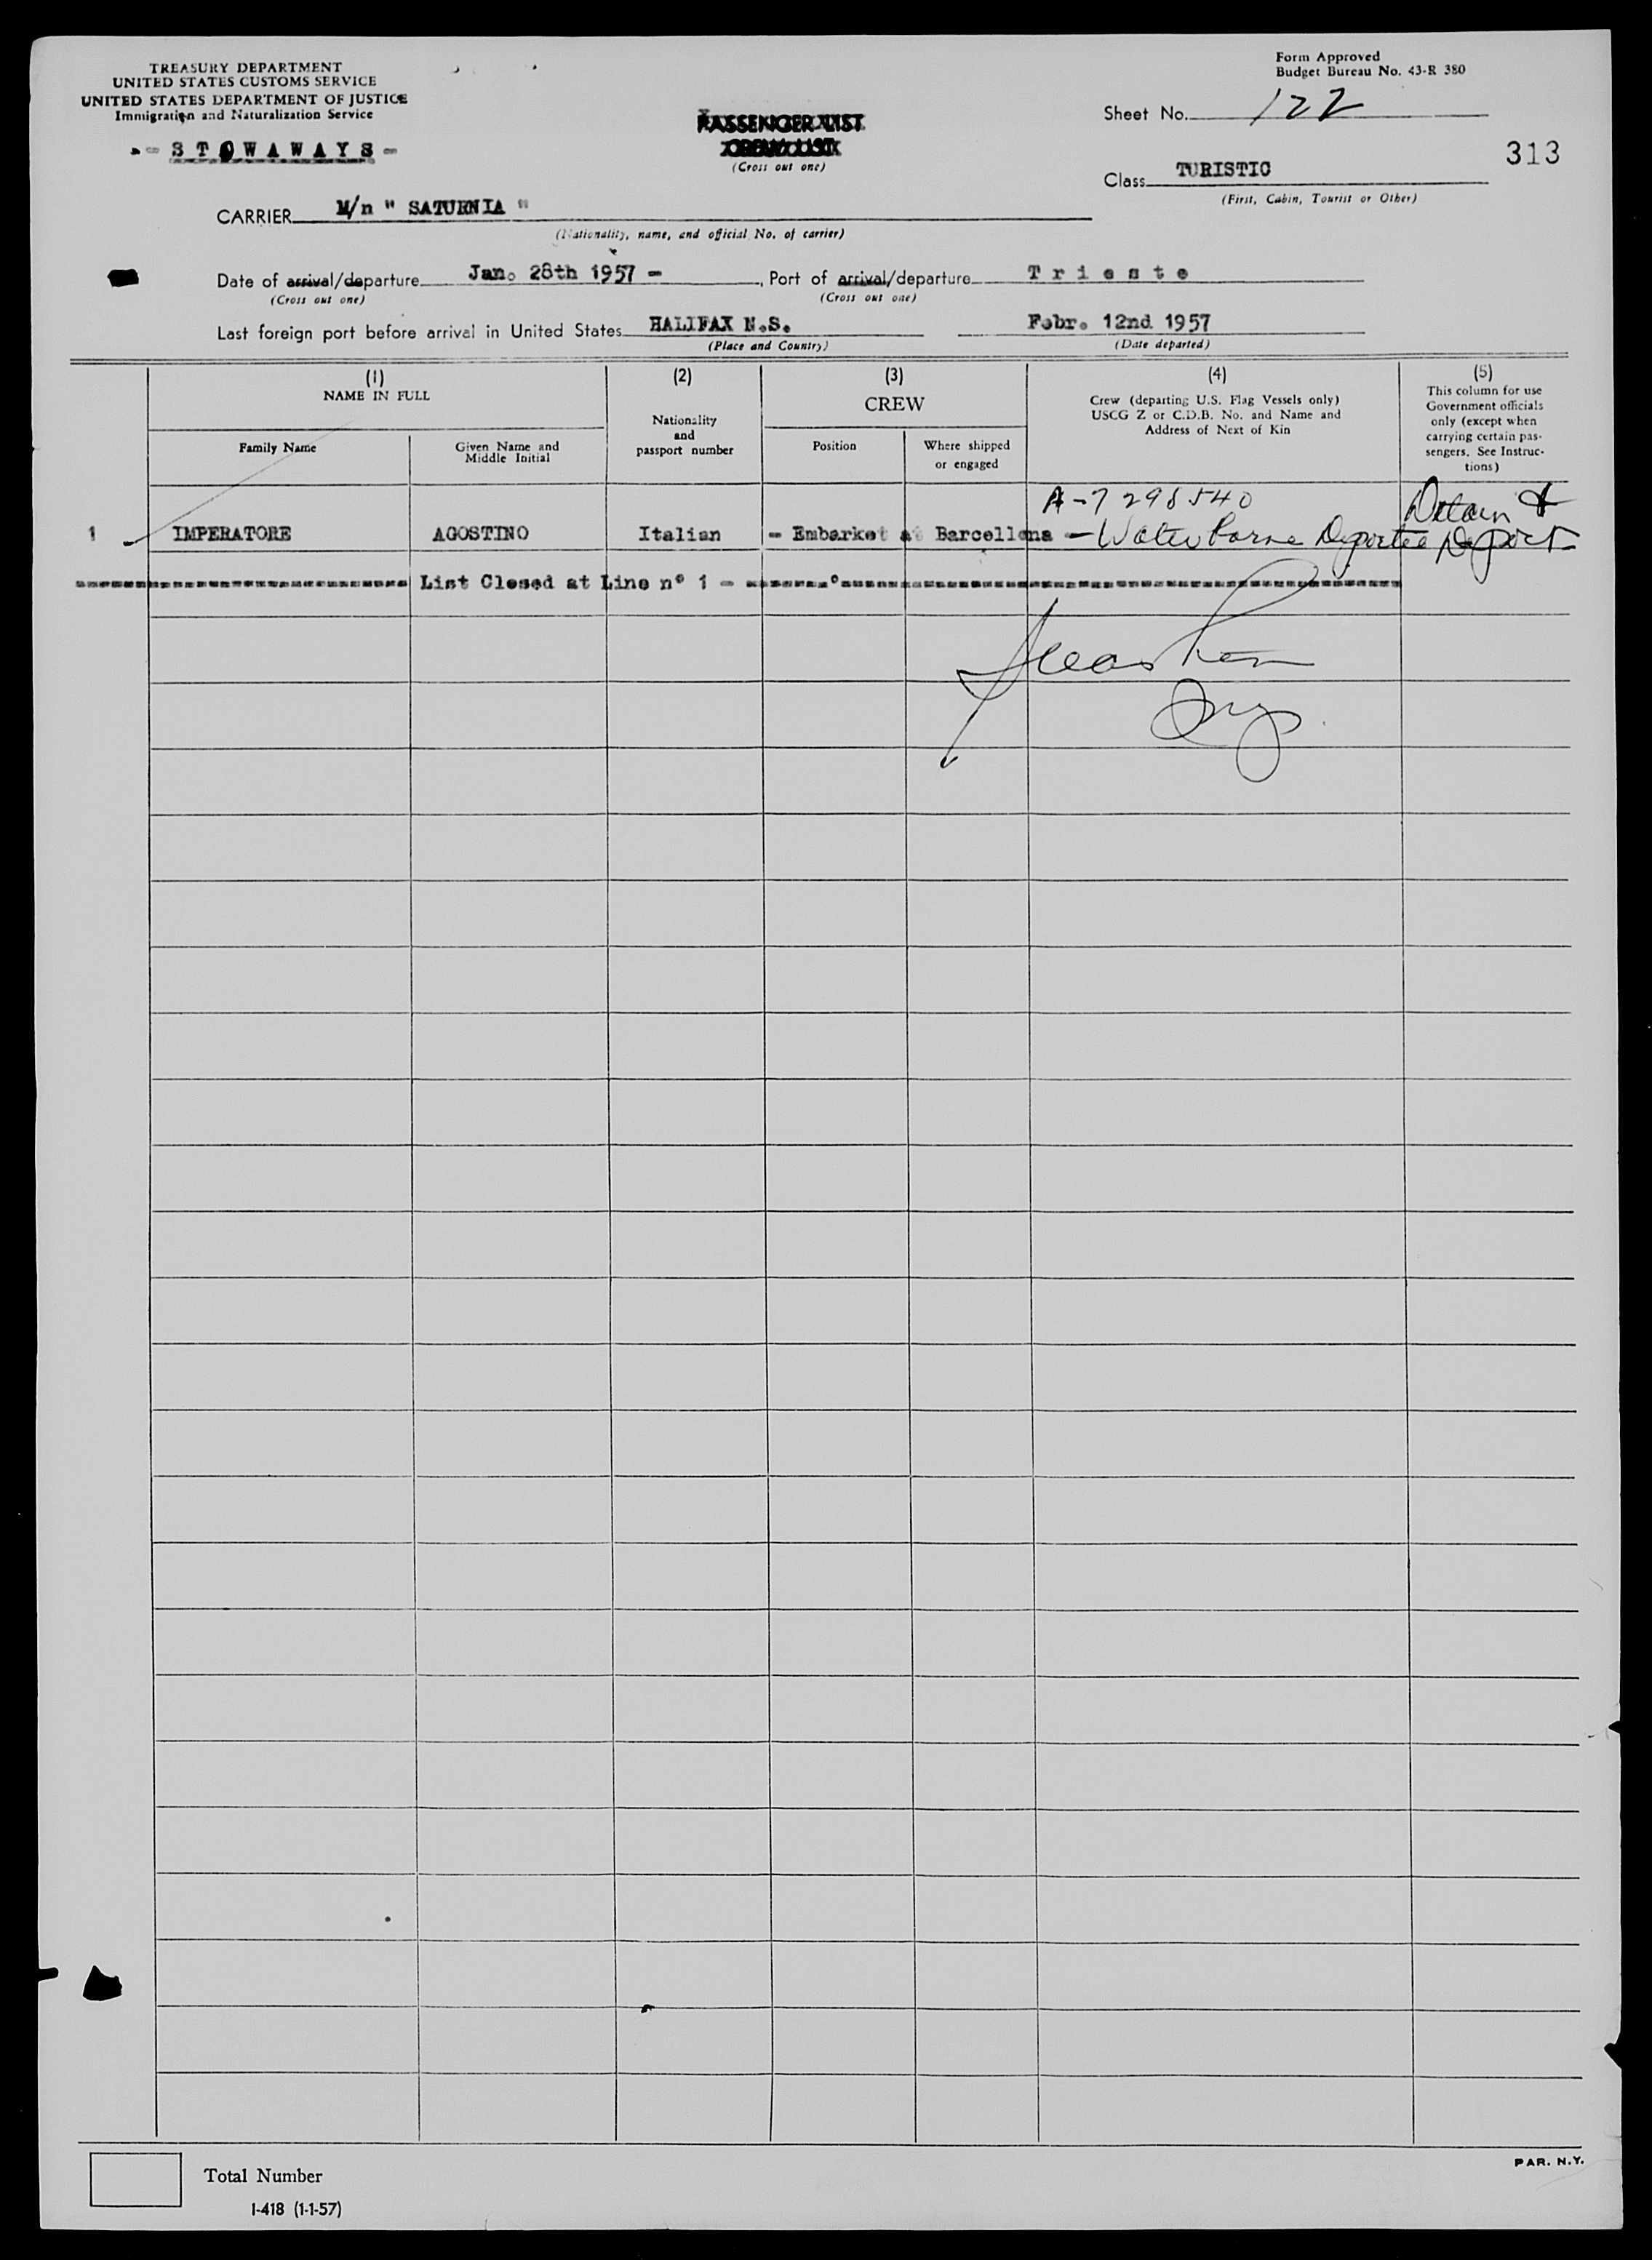 TREASURY DEPARTMENT
UNITED STATES CUSTOMS SERVICE
UNITED STATES DEPARTMENT OF JUSTICE
Immigration and Naturalization Service
- - S T O W A W A Y S -
PASSENGER LIST
CREW LIST
(Cross out one)
Form Approved
Budget Bureau No. 43-R 380
Sheet No. 122
313
Class TURISTIC
(First, Cabin, Tourist or Other)
CARRIER M/n " SATURNIA "
(Nationality, name, and official No. of carrier)
Date of arrival/departure Jan. 28th 1957 - , Port of arrival/departure T r i e s t e
(Cross out one) (Cross out one)
Last foreign port before arrival in United States HALIFAX N.S. Febr. 12nd 1957
(Place and Country) (Date departed)
(1)
NAME IN FULL
Family Name
Given Name and
Middle Initial
(2)
Nationality
and
passport number
(3)
CREW
Position
Where shipped
or engaged
(4)
Crew (departing U.S. Flag Vessels only)
USCG Z or C.D.B. No. and Name and
Address of Next of Kin
(5)
This column for use
Government officials
only (except when
carrying certain pas-
sengers. See Instruc-
tions)
A-7 298540 Detain &
1 IMPERATORE AGOSTINO Italian - Embarket at Barcellona - Water borne Deportee Deport
List Closed at Line n° 1 -
Insp.
Total Number
I-418 (1-1-57)
PAR. N.Y.